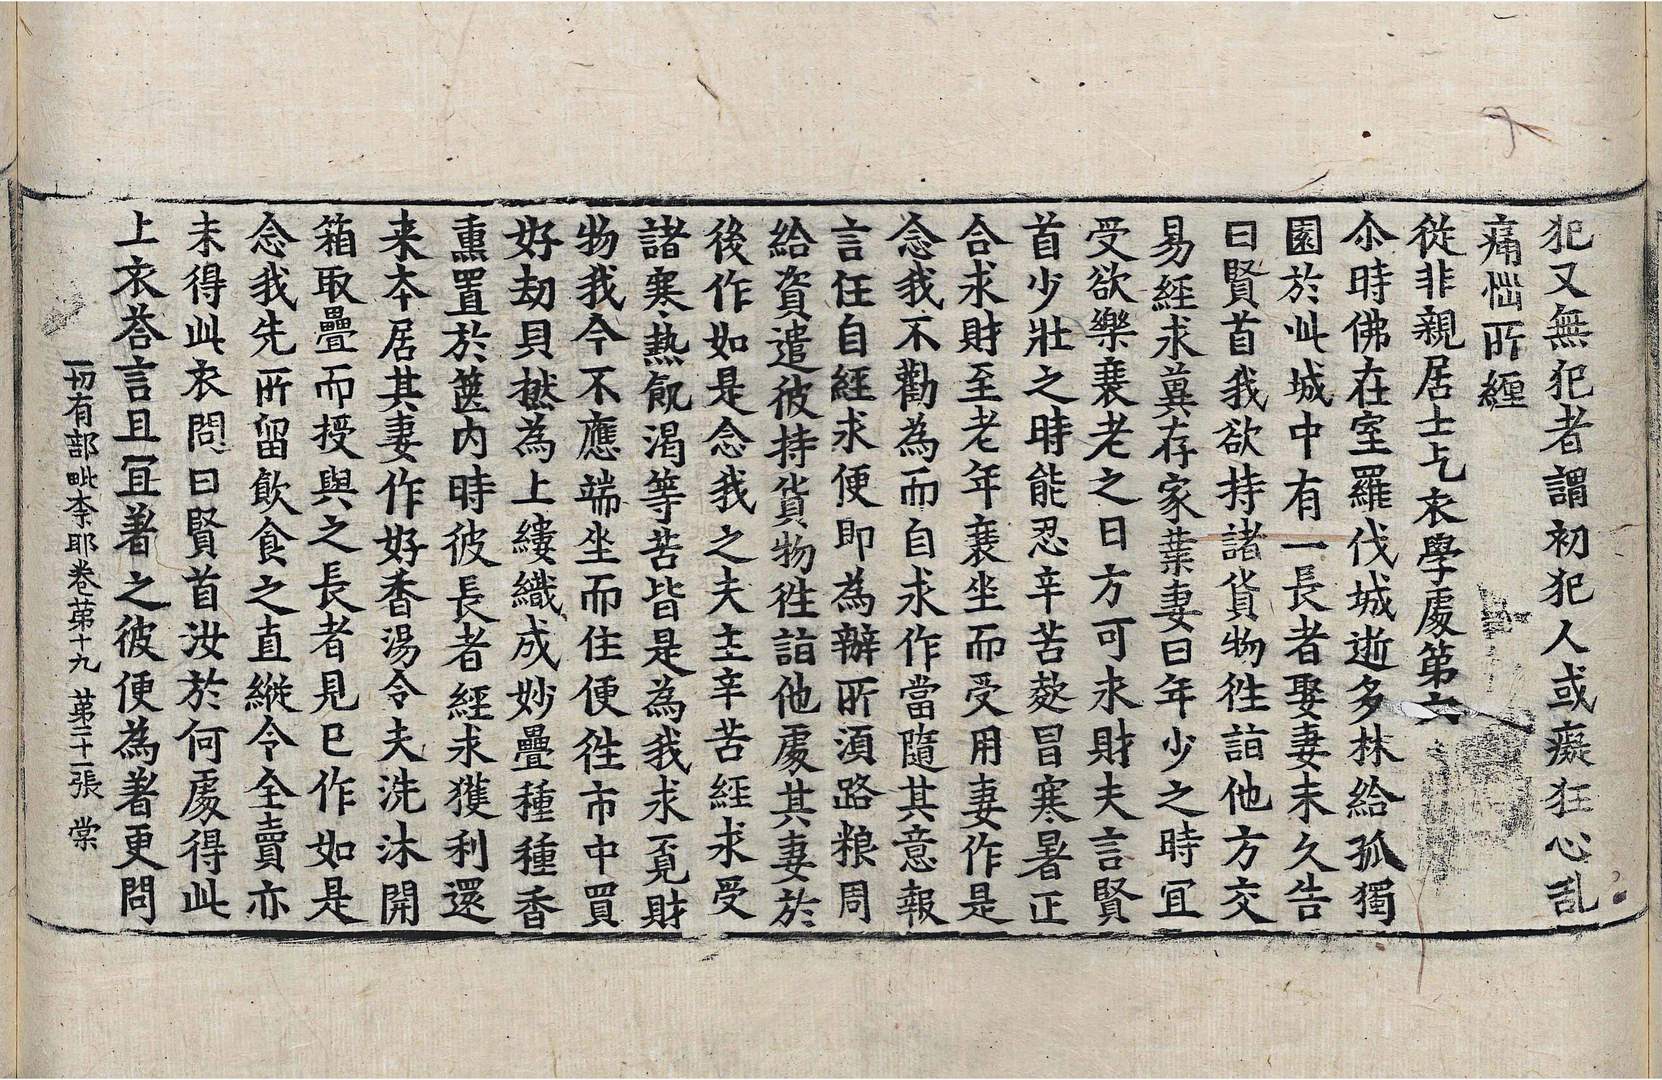 犯又無犯者謂初犯人或癡狂心乱
痛惱所纏
從非親居士乞衣學處第六
尒時佛在室羅伐城逝多林給孤獨
園於此城中有一長者娶妻未久告
曰賢首我欲持諸貨物徃詣他方交
易經求兾存家業妻曰年少之時宜
受欲樂衰老之日方可求財夫言賢
首少壯之時能忍辛苦蒗冒寒暑正
合求財至老年衰坐而受用妻作是
念我不勸為而自求作當隨其意報
言任自經求便即為辦所湏路粮周
給資遣彼持貨物徃詣他處其妻於
後作如是念我之夫主辛苦經求受
諸寒熱飢渴等苦皆是為我求覔財
物我今不應端坐而住便徃市中買
好劫貝撚為上縷織成妙疊種種香
熏置於篋內時彼長者經求獲利還
来本居其妻作好香湯令夫洗沐開
箱取疊而授與之長者見已作如是
念我先所留飲食之直縱令全賣亦
未得此衣問曰賢首汝於何處得此
上衣荅言且冝著之彼便為著更問
一切有部毗柰耶卷苐十九 苐二十一張 棠